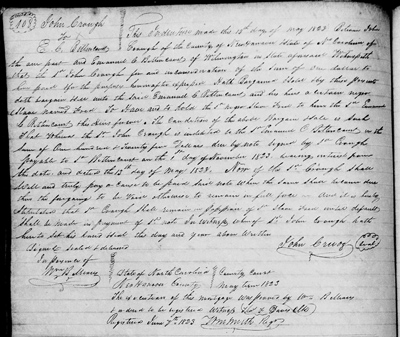 John Creugh
to
E. C. Bettencourt
This Indenture made the 12th day of May 1823 Between John
Creugh of the County of New Hanover State of No Carolina of
the one part and Emanuel C. Bettencourt of Wilmington in State aforesaid Witnesseth
that the sd John Creugh for and in consideration of the Sum of One dollar
have paid for the purpose hereinafter expressed Hath Bargained Sold & by these Presents
doth bargain & Sell unto the said Emanuel C. Bettencourt and his heirs a certain negro
Slave named Frost to Have and to Hold the sd negro Slave Frost to him the sd Emanuel
C. Bettencourt, his heirs forever. The Condition of the above Bargain & Sale is Such
that Whereas the sd John Creugh is indebted to the sd Emanuel C Bettencourt in the
Sum of One hundred & Twenty five Dollars due by note Signed by sd Creugh
payable to sd Bettencourt on the 1st day of November 1823 bearing interest from
the date and dated the 12th day of May 1823. Now if the sd Creugh shall
Well and truly pay or cause to be paid Such note When the Same Shall become due
then this bargain to be Void otherwise to remain in full force And it is hereby
Stipulated that sd Creugh Shall remain in possession of sd Slave Frost until default
Shall be made in payment of sd note In Witness whereof sd John Creugh hath
hereto set his hand & seal this day and year above Written
Signed Sealed & delivered
John Creugh (Seal)
In presence of
Wm B Meares
State of North Carolina
New Hanover County
County Court
May term 1823
The execution of this mortgage was proved by Wm B Meares
& ordered to be registered Witness Tho. F. Davis Clk
Registered June 7th 1823